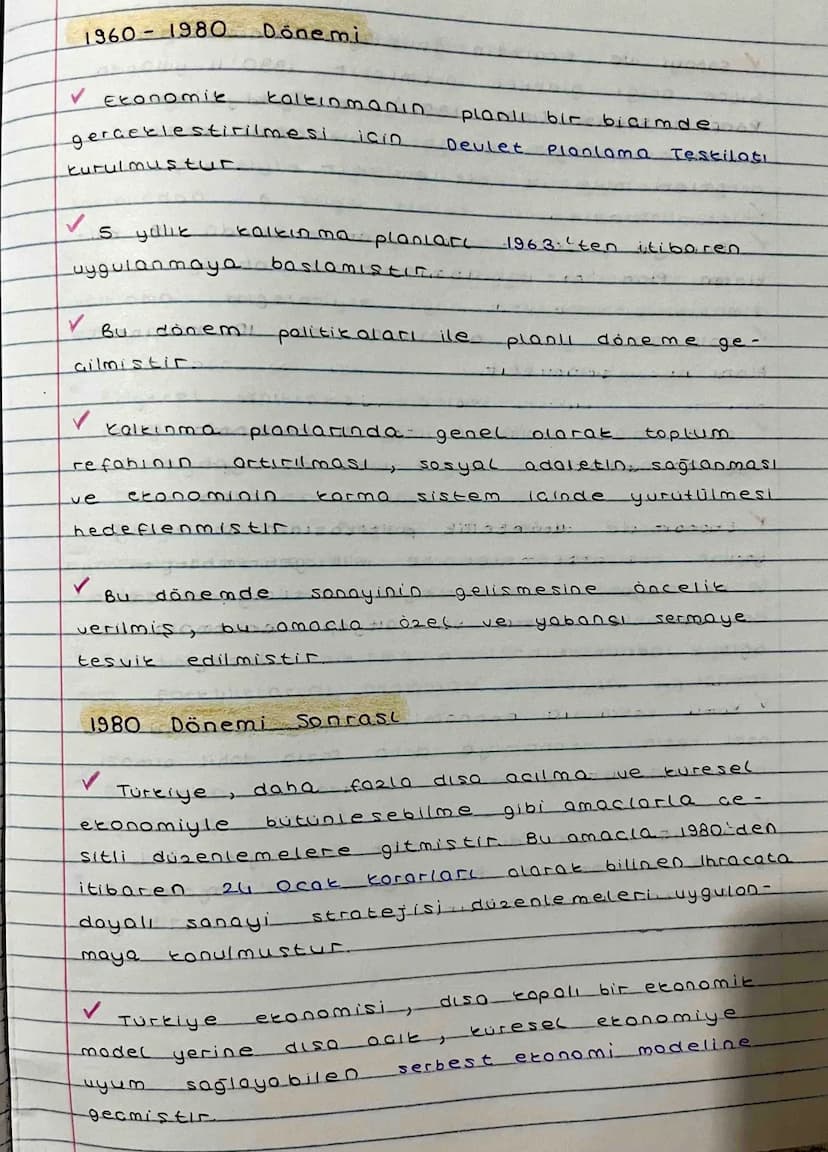 1960 - 1980 Dönemi
✓ Ekonomik kalkınmanın planlı bir biçimde
gerçekleştirilmesi için Devlet Planlama Teşkilatı
kurulmuştur.
✓ 5 yıllık kalkınma planları 1963'ten itibaren
uygulanmaya başlamıştır.
✓ Bu dönem politikaları ile planlı döneme ge-
çilmiştir.
✓ Kalkınma planlarında genel olarak toplum
refahının artırılması, sosyal adaletin sağlanması
ve ekonominin karma sistem içinde yürütülmesi
hedeflenmiştir.
✓ Bu dönemde sanayinin gelişmesine öncelik
verilmiş, bu amaçla özel ve yabancı sermaye
teşvik edilmiştir.
1980 Dönemi Sonrası
✓ Türkiye, daha fazla dışa açılma ve küresel
ekonomiyle bütünleşebilme gibi amaçlarla çe-
şitli düzenlemelere gitmiştir. Bu amaçla 1980'den
itibaren 24 Ocak Kararları olarak bilinen İhracata
dayalı sanayi stratejisi düzenlemeleri uygulan-
maya konulmuştur.
✓ Türkiye ekonomisi, dışa kapalı bir ekonomik
model yerine dışa açık, küresel ekonomiye
uyum sağlayabilen serbest ekonomi modeline
geçmiştir.